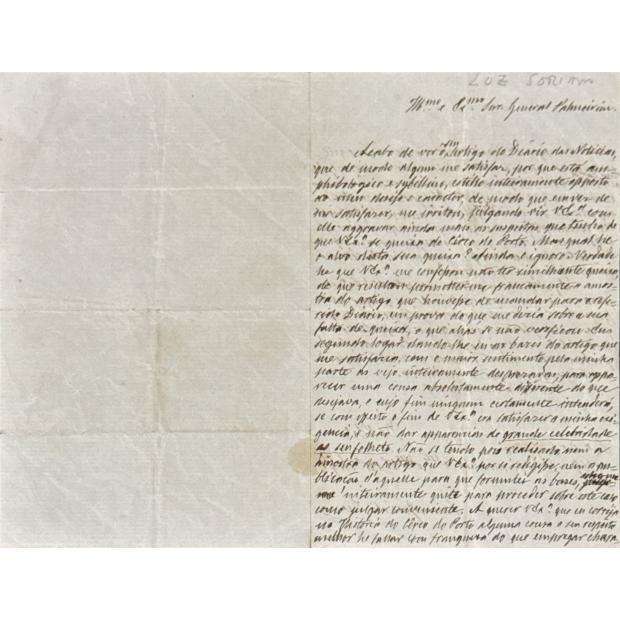 LUZ SORIANO
Illmo e Exmo Snr. General Palmeirim
Acabo de ver o artigo do Diário das Noticias,
que de modo algum me satisfaz, por que está am-
phibologico e sybillino, estillo inteiramente opposto
ao meu desejo e caracter, de modo que em vez de
me satisfazer, me irritou, julgando vir V Exª com
elle aggravar ainda mais as suspeitas, que tenho de
que V Exª se queixa do Cêrco do Porto. Mas qual he
o alvo desta sua queixa? Ainda o ignoro. Verdade
he que V Exª me confessou não ter similhante queixa,
de que resultou prometter-me francamente a amos-
tra do artigo que houvesse de mandar para o refe-
rido Diário, em prova do que me dizia sobre a sua
falta de queixa, o que alias se não verificou. Em
segundo logar dando-lhe eu as bases do artigo que
me satisfaria, com o maior sentimento pela minha
parte as vejo inteiramente desprezadas, para appa-
recer uma cousa absolutamente differente do que
desejava, e cujo fim ninguem certamente entenderá,
se com effeito o fim de V Exª era satisfazer a minha exi-
gencia, e não dar apparencias de grande celebridade
ao seu folheto. Não se tendo pois realisado nem a
amostra do artigo que V Exª por si redigisse, nem a pu-
blicação d'aquelle para que formulei as bases,
inteiramente quite para proceder sobre este caso
como julgar conveniente. A querer V Exª que eu corrija
na Historia do Cêrco do Porto alguma cousa a seu respeito
melhor he fallar com franqueza do que empregar